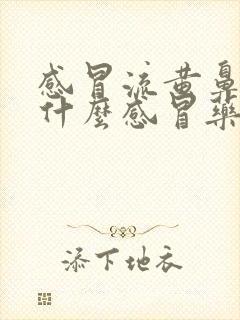 感冒流黄鼻
什麼感冒藥
添下地衣